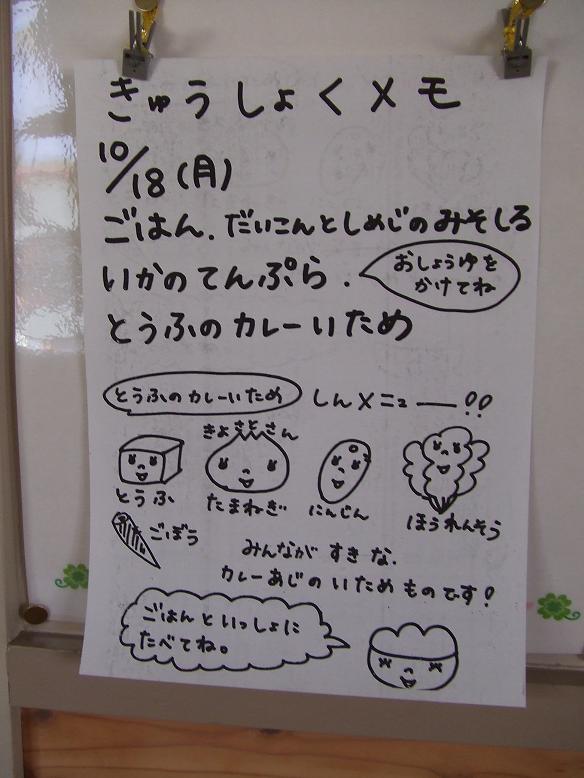 きゅうしょくメモ
10/18(月)
ごはん.だいこんとしめじのみそしる
いかのてんぷら.
おしょうゆを
かけてね
とうふのカレーいため
とうふのカレーいため
しんメニュー!!
きよさとさん
とうふ
たまねぎ
にんじん
ほうれんそう
ごぼう
みんながすきな.
カレーあじのいためものです!
ごはんといっしょに
たべてね。